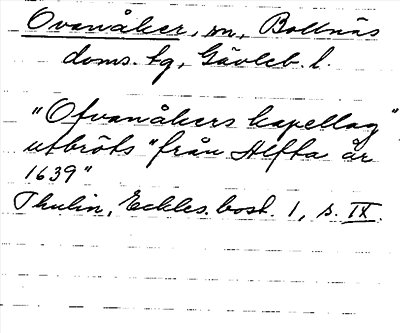 Ovanåker, sn, Bollnäs
doms. tg, Gävleb. l.
"Ofvanåkers kapellag"
utbröts "från Alfta år
1639"
Thulin, Eckles. bost. 1, s. IX.